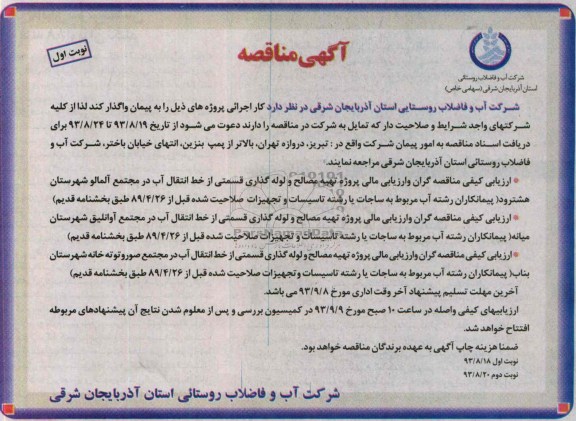 آگهی مناقصه
نوبت اول
شرکت آب و فاضلاب روستائی
استان آذربایجان شرقی (سهامی خاص)
شرکت آب و فاضلاب روستایی استان آذربایجان شرقی در نظر دارد کار اجرائی پروژه های ذیل را به پیمان واگذار کند لذا از کلیه
شرکتهای واجد شرایط و صلاحیت دار که تمایل به شرکت در مناقصه را دارند دعوت می شود از تاریخ ۹۳/۸/۱۹ تا ۹۳/۸/۲۴ برای
دریافت اسناد مناقصه به امور پیمان شرکت واقع در : تبریز، دروازه تهران، بالاتر از پمپ بنزین، انتهای خیابان باختر، شرکت آب و
فاضلاب روستائی استان آذربایجان شرقی مراجعه نمایند.
• ارزیابی کیفی مناقصه گران وارزیابی مالی پروژه تهیه مصالح و لوله گذاری قسمتی از خط انتقال آب در مجتمع آلمالو شهرستان
هشترود( پیمانکاران رشته آب مربوط به ساجات یا رشته تاسیسات و تجهیزات صلاحیت شده قبل از ۸۹/۴/۲۶ طبق بخشنامه قدیم)
• ارزیابی کیفی مناقصه گران وارزیابی مالی پروژه تهیه مصالح و لوله گذاری قسمتی از خط انتقال آب در مجتمع آوانلیق شهرستان
میانه( پیمانکاران رشته آب مربوط به ساجات یا رشته تاسیسات و تجهیزات صلاحیت شده قبل از ۸۹/۴/۲۶ طبق بخشنامه قدیم)
• ارزیابی کیفی مناقصه گران وارزیابی مالی پروژه تهیه مصالح و لوله گذاری قسمتی از خط انتقال آب در مجتمع صور و توته خانه شهرستان
بناب( پیمانکاران رشته آب مربوط به ساجات یا رشته تاسیسات و تجهیزات صلاحیت شده قبل از ۸۹/۴/۲۶ طبق بخشنامه قدیم)
آخرین مهلت تسلیم پیشنهاد آخر وقت اداری مورخ ۹۳/۹/۸ می باشد.
ارزیابیهای کیفی واصله در ساعت ۱۰ صبح مورخ ۹۳/۹/۹ در کمیسیون بررسی و پس از معلوم شدن نتایج آن پیشنهادهای مربوطه
افتتاح خواهد شد.
ضمنا هزینه چاپ آگهی به عهده برندگان مناقصه خواهد بود.
نوبت اول ۹۳/۸/۱۸
نوبت دوم ۹۳/۸/۲۰
شرکت آب و فاضلاب روستائی استان آذربایجان شرقی